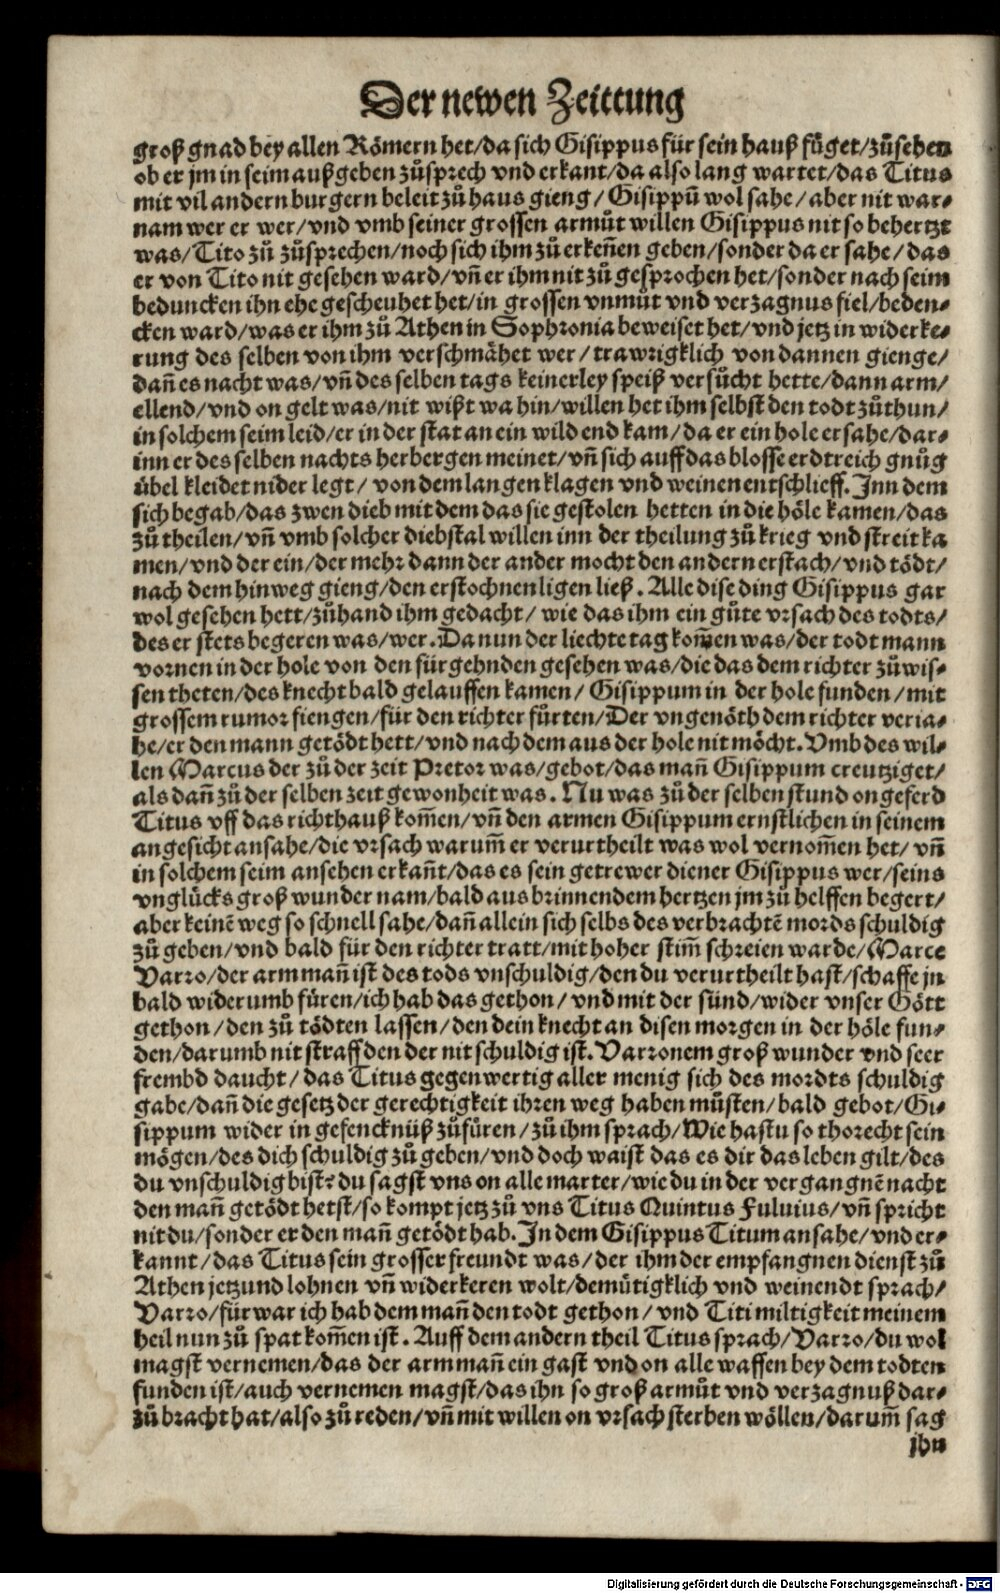 Der newen Zeittung
groß gnad bey allen Römern het/da sich Gisippus für sein hauß füget/zůsehen
ob er jm in seim außgeben zůsprech vnd erkant/da also lang wartet/das Titus
mit vil andern burgern beleit zů haus gieng/ Gisippū wol sahe/ aber nit war⸗
nam wer er wer/vnd vmb seiner grossen armůt willen Gisippus nit so behertzt
was/Tito zů zůsprechen/noch sich ihm zů erkeñen geben/sonder da er sahe/ das
er von Tito nit gesehen ward/ vñ er ihm nit zů gesprochen het/sonder nach seim
beduncken ihn ehe gescheuhet het/in grossen vnmůt vnd verzagnus fiel/beden⸗
cken ward/was er ihm zů Athen in Sophronia beweiset het/vnd jetz in widerke⸗
rung des selben von ihm verschmähet wer/ trawrigklich von dannen gienge/
dañ es nacht was/vñ des selben tags keinerley speiß versůcht hette/dann arm/
ellend/vnd on gelt was/nit wißt wa hin/willen het ihm selbst den todt zůthun/
in solchem seim leid/er in der stat an ein wild end kam/da er ein hole ersahe/dar⸗
inn er des selben nachts herbergen meinet/vñ sich auff das blosse erdtreich gnůg
übel kleidet nider legt/ von dem langen klagen vnd weinen entschlieff. Inn dem
sich begab/das zwen dieb mit dem das sie gestolen hetten in die höle kamen/das
zů theilen/vñ vmb solcher diebstal willen inn der theilung zů krieg vnd streit ka
men/vnd der ein/der mehr dann der ander mocht den andern erstach/vnd tödt/
nach dem hinweg gieng/den erstochnen ligen ließ. Alle dise ding Gisippus gar
wol gesehen hett/zůhand ihm gedacht/ wie das ihm ein gůte vrsach des todts/
des er stets begeren was/wer. Da nun der liechte tag kom̃en was/der todt mann
vornen in der hole von den fürgehnden gesehen was/die das dem richter zů wis⸗
sen theten/des knecht bald gelauffen kamen/ Gisippum in der hole funden/mit
grossem rumor fiengen/für den richter fürten/Der vngenöth dem richter veria⸗
he/er den mann getödt hett/vnd nach dem aus der hole nit möcht. Vmb des wil⸗
len Marcus der zů der zeit Pretor was/gebot/das mañ Gisippum creutziget/
als dañ zů der selben zeit gewonheit was. Nu was zů der selben stund ongeferd
Titus vff das richthauß kom̃en/vñ den armen Gisippum ernstlichen in seinem
angesicht ansahe/die vrsach warum̃ er verurtheilt was wol vernom̃en het/ vñ
in solchem seim ansehen erkañt/das es sein getrewer diener Gisippus wer/seins
vnglücks groß wunder nam/bald aus brinnendem hertzen jm zů helffen begert/
aber keinē weg so schnell sahe/dañ allein sich selbs des verbrachtē mords schuldig
zů geben/vnd bald für den richter tratt/mit hoher stim̃ schreien warde/Marce
Varro/der arm mañ ist des tods vnschuldig/den du verurtheilt hast/schaffe jn
bald widerumb füren/ich hab das gethon/ vnd mit der sünd/wider vnser Gött
gethon/den zů tödten lassen/den dein knecht an disen morgen in der höle fun⸗
den/darumb nit straff den der nit schuldig ist. Varronem groß wunder vnd seer
frembd daucht/das Titus gegenwertig aller menig sich des mordts schuldig
gabe/dañ die gesetz der gerechtigkeit ihren weg haben müsten/bald gebot/Gi⸗
sippum wider in gefencknüß zůfüren/zů ihm sprach/Wie hastu so thorecht sein
mögen/des dich schuldig zů geben/vnd doch waist das es dir das leben gilt/des
du vnschuldig bist? du sagst vns on alle marter/wie du in der vergangnē nacht
den mañ getödt hetst/so kompt jetz zů vns Titus Quintus Fuluius/vñ spricht
nit du/sonder er den mañ getödt hab. In dem Gisippus Titum ansahe/vnd er⸗
kannt/das Titus sein grosser freundt was/der ihm der empfangnen dienst zů
Athen jetzund lohnen vñ widerkeren wolt/demütigklich vnd weinendt sprach/
Varro/fürwar ich hab dem mañ den todt gethon/ vnd Titi miltigkeit meinem
heil nun zů spat kom̃en ist. Auff dem andern theil Titus sprach/Varro/du wol
magst vernemen/das der arm mañ ein gast vnd on alle waffen bey dem todten
funden ist/auch vernemen magst/das ihn so groß armůt vnd verzagnuß dar⸗
zů bracht hat/also zů reden/vñ mit willen on vrsach sterben wöllen/darum̃ sag
ihn
Digitalisierung gefördert durch die Deutsche Forschungsgemeinschaft - DFG